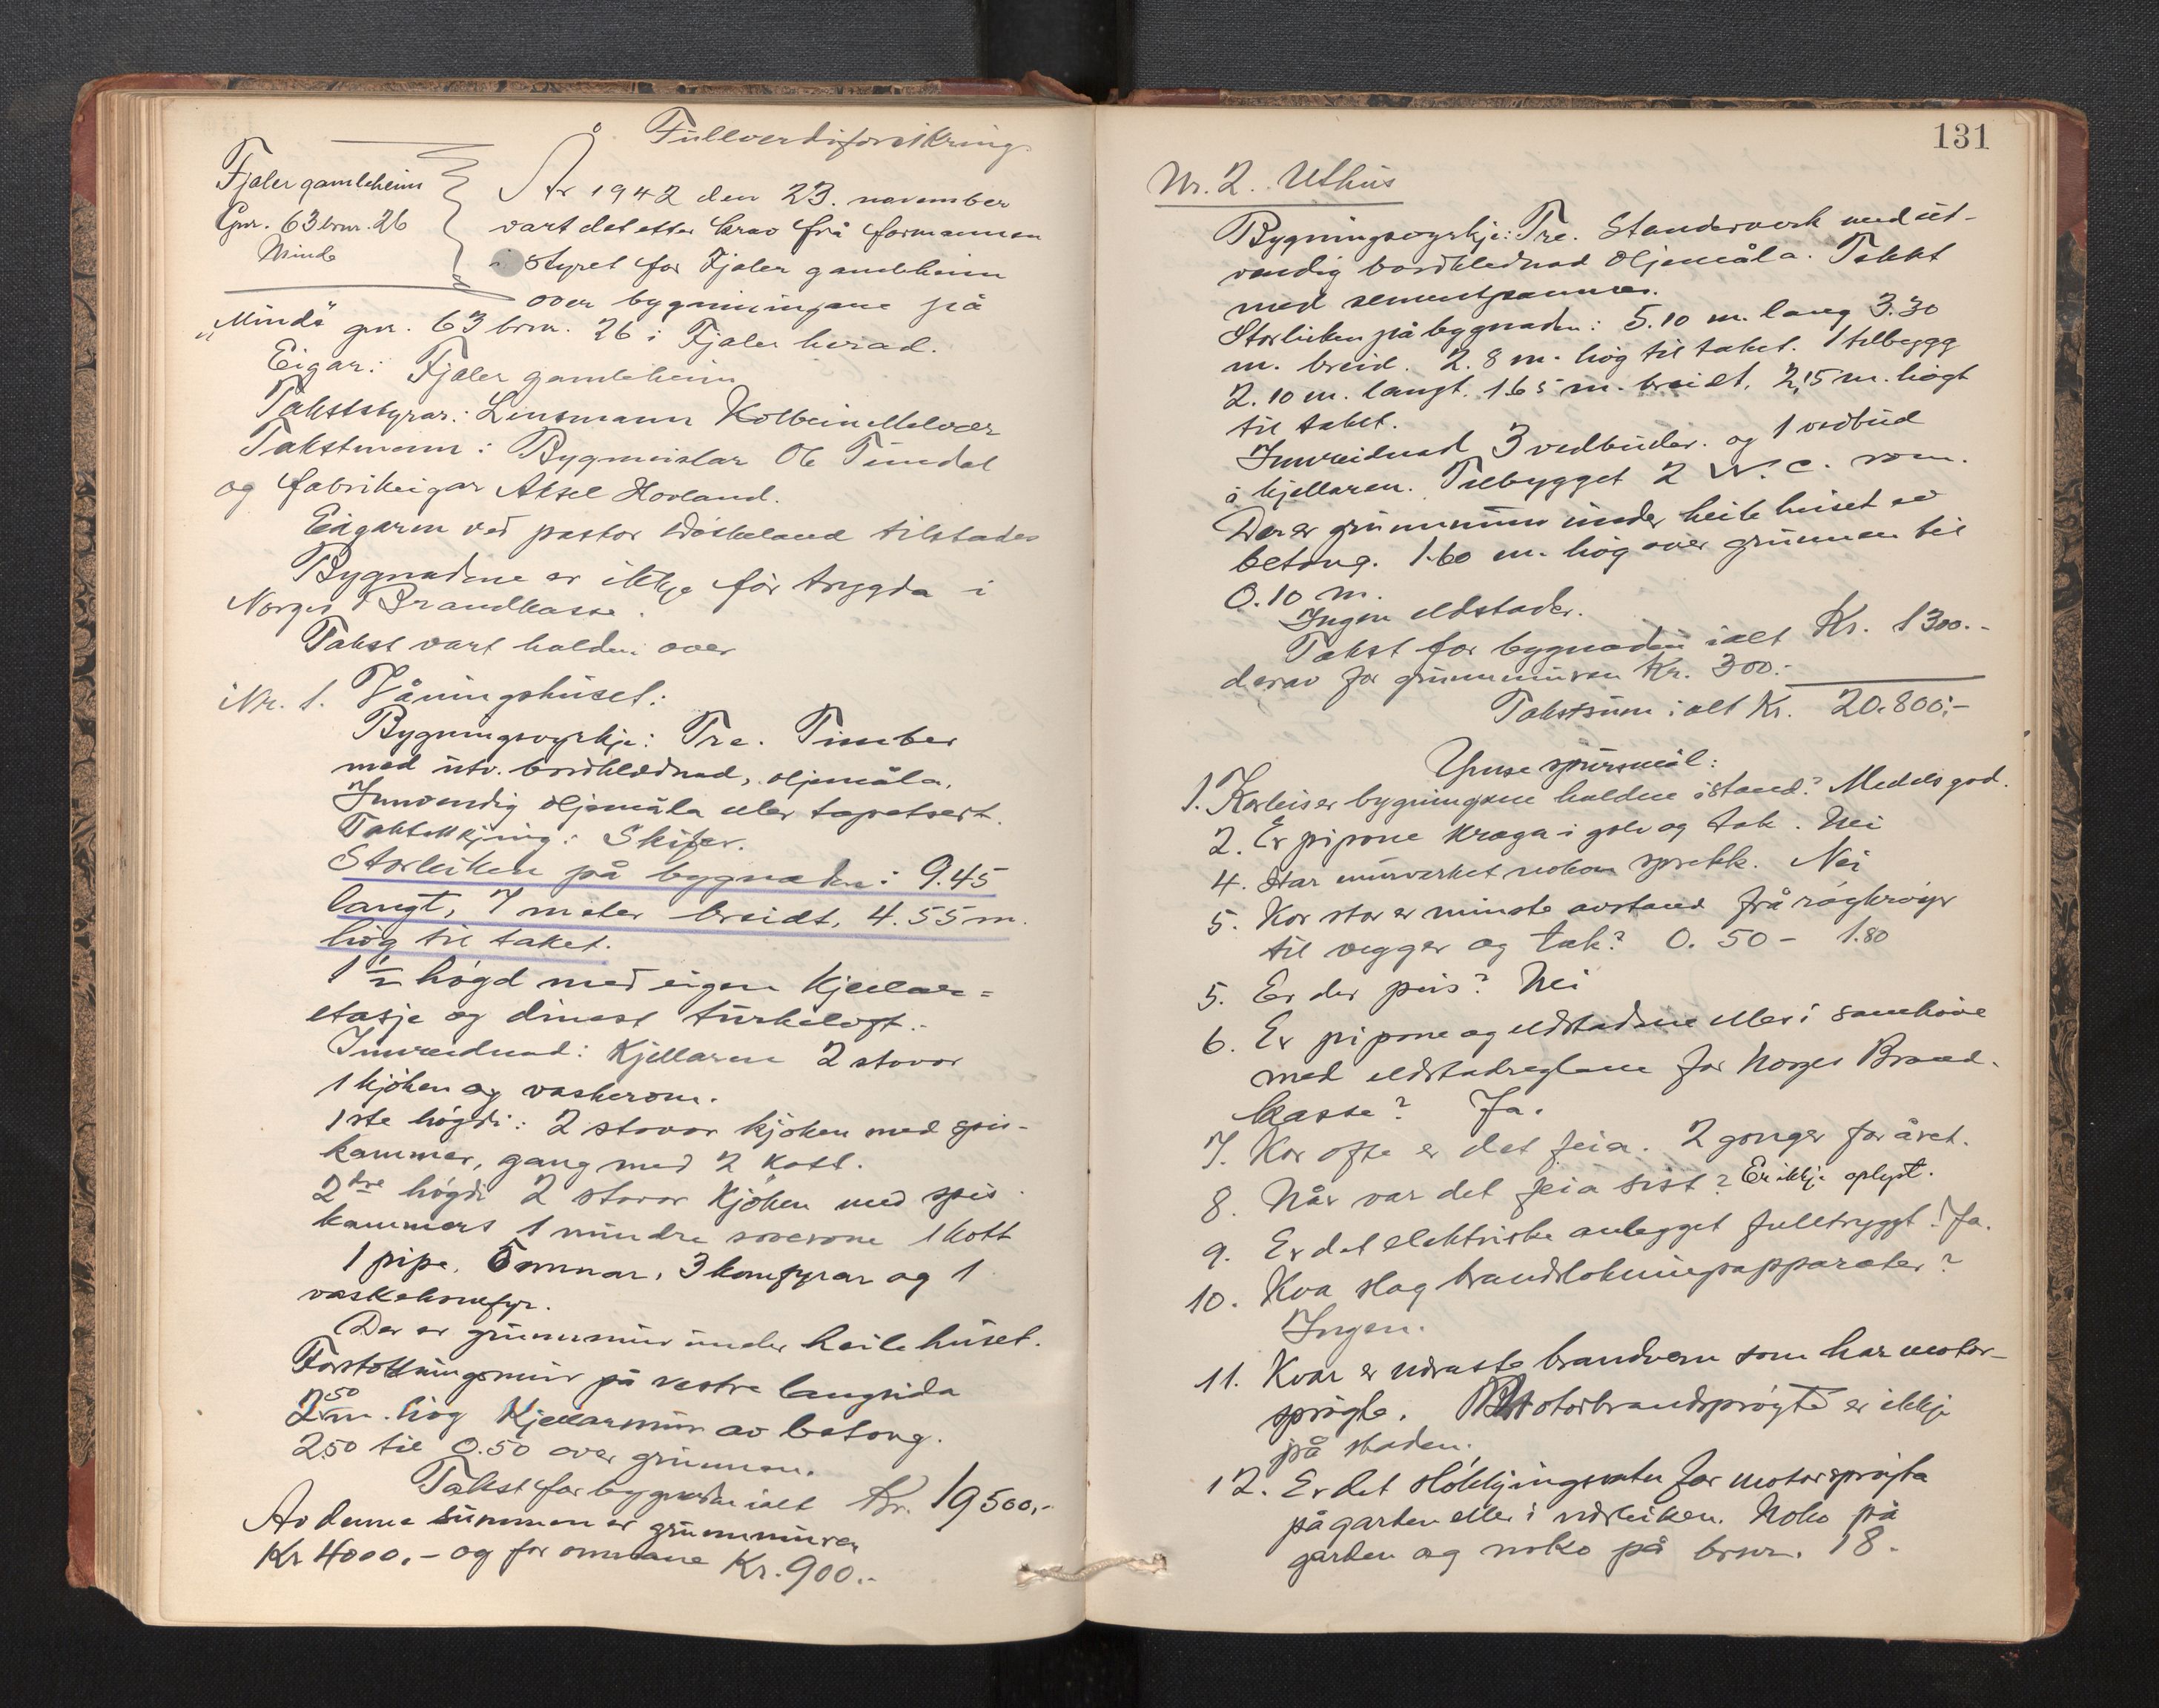 Fullverdiforsikring.
Fjaler gamleheim
Gnr. 63 brnr. 26
Minde
År 1942 den 23. november
vart det etter krav frå formannen
i styret for Fjaler gamleheim
over bygningane på
"Minde" gnr. 63 brnr. 26 i Fjaler herad.
Eigar: Fjaler gamleheim
Takststyrar: Lensmann Kolbein Melvær
Takstmenn: Bygmeistar Ole Timdal
og fabrikeigar Aksel Hovland.
Eigaren ved pastor tilstades
Bygnadene er ikkje før trygda i
Norges Brandkasse.
Takst vart halden over
Nr. 1. Våningshuset:
Bygningsvyrkje: Tre. Timber
med utv. bordklednad, oljemåla.
Innvendig oljemåla eller tapetsert.
Taktekkjing: Skifer.
Storleiken på bygnaden: 9.45
langt, 7 meter breidt, 4.55 m.
høg til taket.
1 1/2 høgd med eigen kjellar=
etasje og dinest turkeloft.
Innreidnad: Kjellaren 2 stovor
1 kjøken og vaskerom.
1ste høgdi: 2 stovor kjøken med spis-
kammer, gang med 2 kott.
2dre høgdi 2 stovor kjøken med spis-
kammers 1 mindre soverom 1 kott
1 pipe, 5 omnar, 3 komfyrar og 1
vaskekomfyr.
Der er grunnmur under heile huset.
Forstøttningsmur på vestre langsida
2.50 m. høg Kjellarmur av betong.
2.50 til 0.50 over grunnen.
Takst for bygnaden ialt Kr. 19500,-
Av denne summen er grunnmuren
Kr 4000.- og for omnane Kr. 900.-
131
Nr. 2. Uthus
Bygningsvyrkje: Tre. Standerverk med ut-
vendig bordklednad oljemåla. Tekkt
med sementpanner.
Storleiken på bygnaden: 5.10 m. lang 3.30
m. breid. 2.8 m. høg til taket. 1 tilbygg
2.10 m. langt. 1.65 m. breidt, 2,15 m. høgt
til taket.
Innreidnad 3 vedbuder. og 1 vedbud
i kjellaren. Tilbygget 2 W.C. rom.
Der er grunnmur under heile huset av
betong. 1.60 m. høg over grunnen til
0.10 m.
Ingen eldstader.
Takst for bygnaden ialt Kr. 1300.-
derav for grunnmuren Kr. 300.-
Takstsum i alt Kr. 20.800,-
Ymse spursmål:
1. Korleis er bygningane haldne istand? Medels god.
2. Er pipone kraga i golv og tak. Nei
4. Har murverket nokon sprekk. Nei
5. Kor stor er minste avstand frå røykrøyr
til vegger og tak? 0.50 - 1.80
5. Er der peis? Nei
6. Er pipone og eldstadene elles i samhøve
med eldstadreglane for Norges Brand-
kasse? Ja.
7. Kor ofte er det feia. 2 gonger for året.
8. Når var det feia sist? Er ikkje oplyst.
9. Er det elektriske anlegget fulltrygt? Ja.
10. Kva slag brandslokningsapparater?
Ingen.
11. Kvar er næraste brandvern som har motor-
sprøyte. Motorbrandsprøyte er ikkje
på staden.
12. Er det sløkkjingsvatn for motorsprøyta
på garden eller i nærleiken. Noko på
garden og noko på brnr. 18.